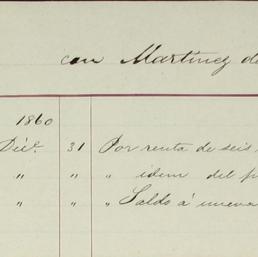 con Martinez de
1860
Dic.e 31 Por renta de seis
" " " idem del p
" " " Saldo á nueva